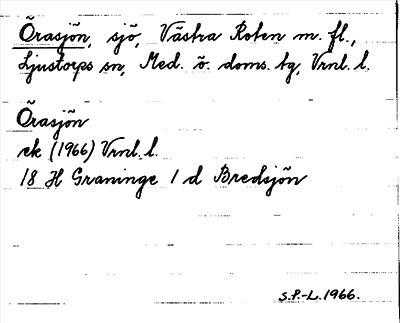 Örasjön, sjö, Västra Roten m. fl.,
Ljustorps sn, Med. ö. doms. tg, Vrnl. l.
Örasjön
ek (1966) Vrnl. l.
18 H Graninge 1 d Bredsjön
S.P.-L. 1966.